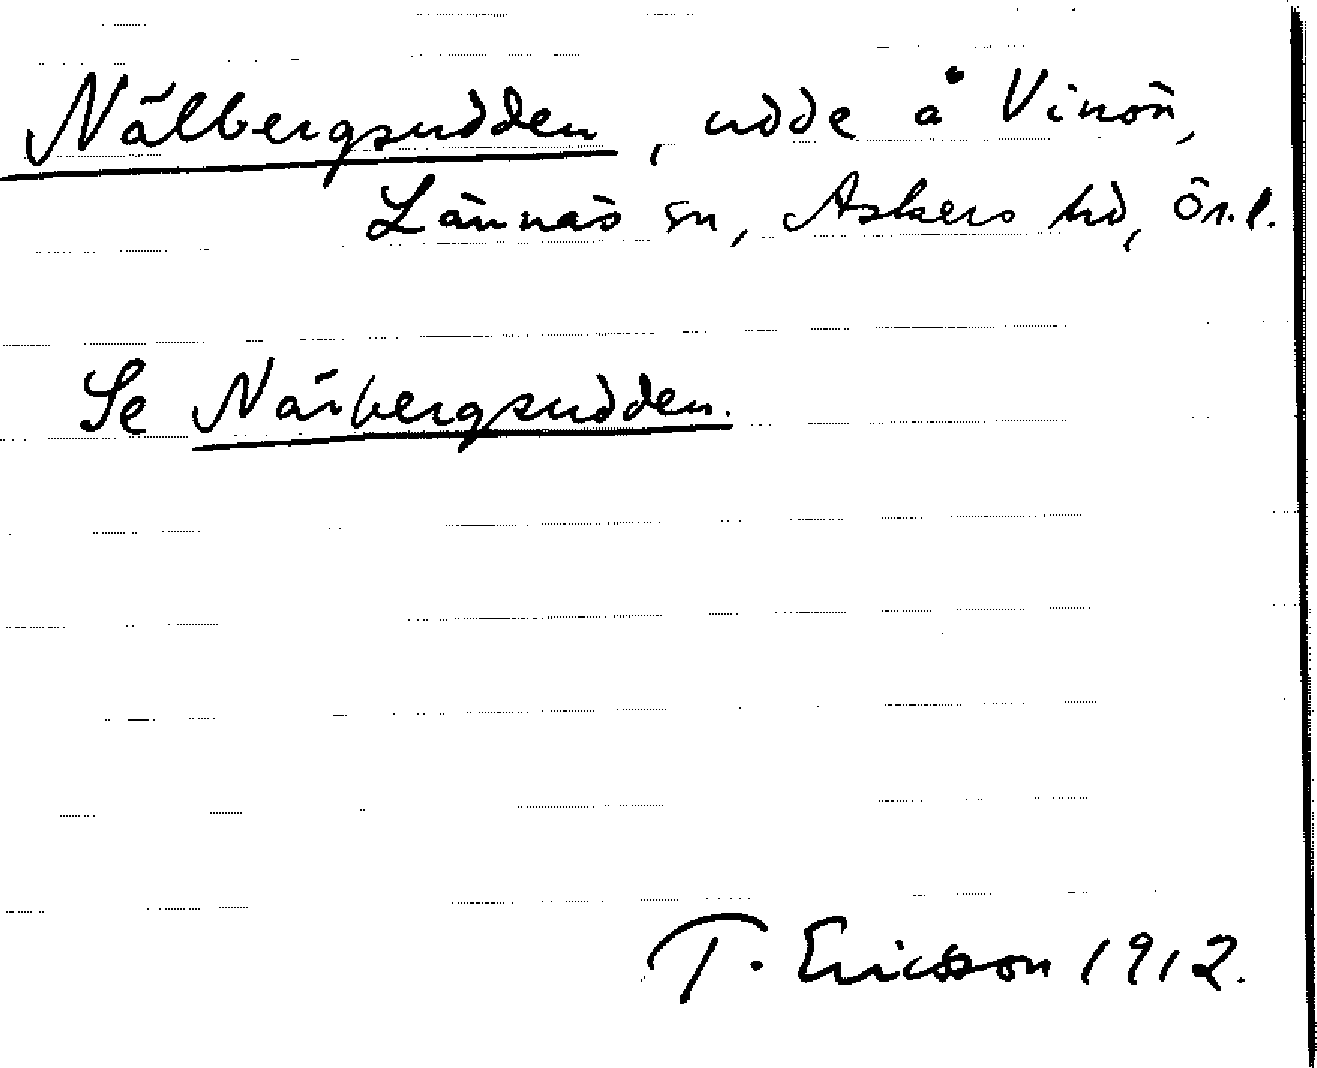 Nälbergsudden, udde å Vinön,
Lännäs sn, Askers hd, Ör.l.
Se Närbergsudden.
T. Ericsson 1912.